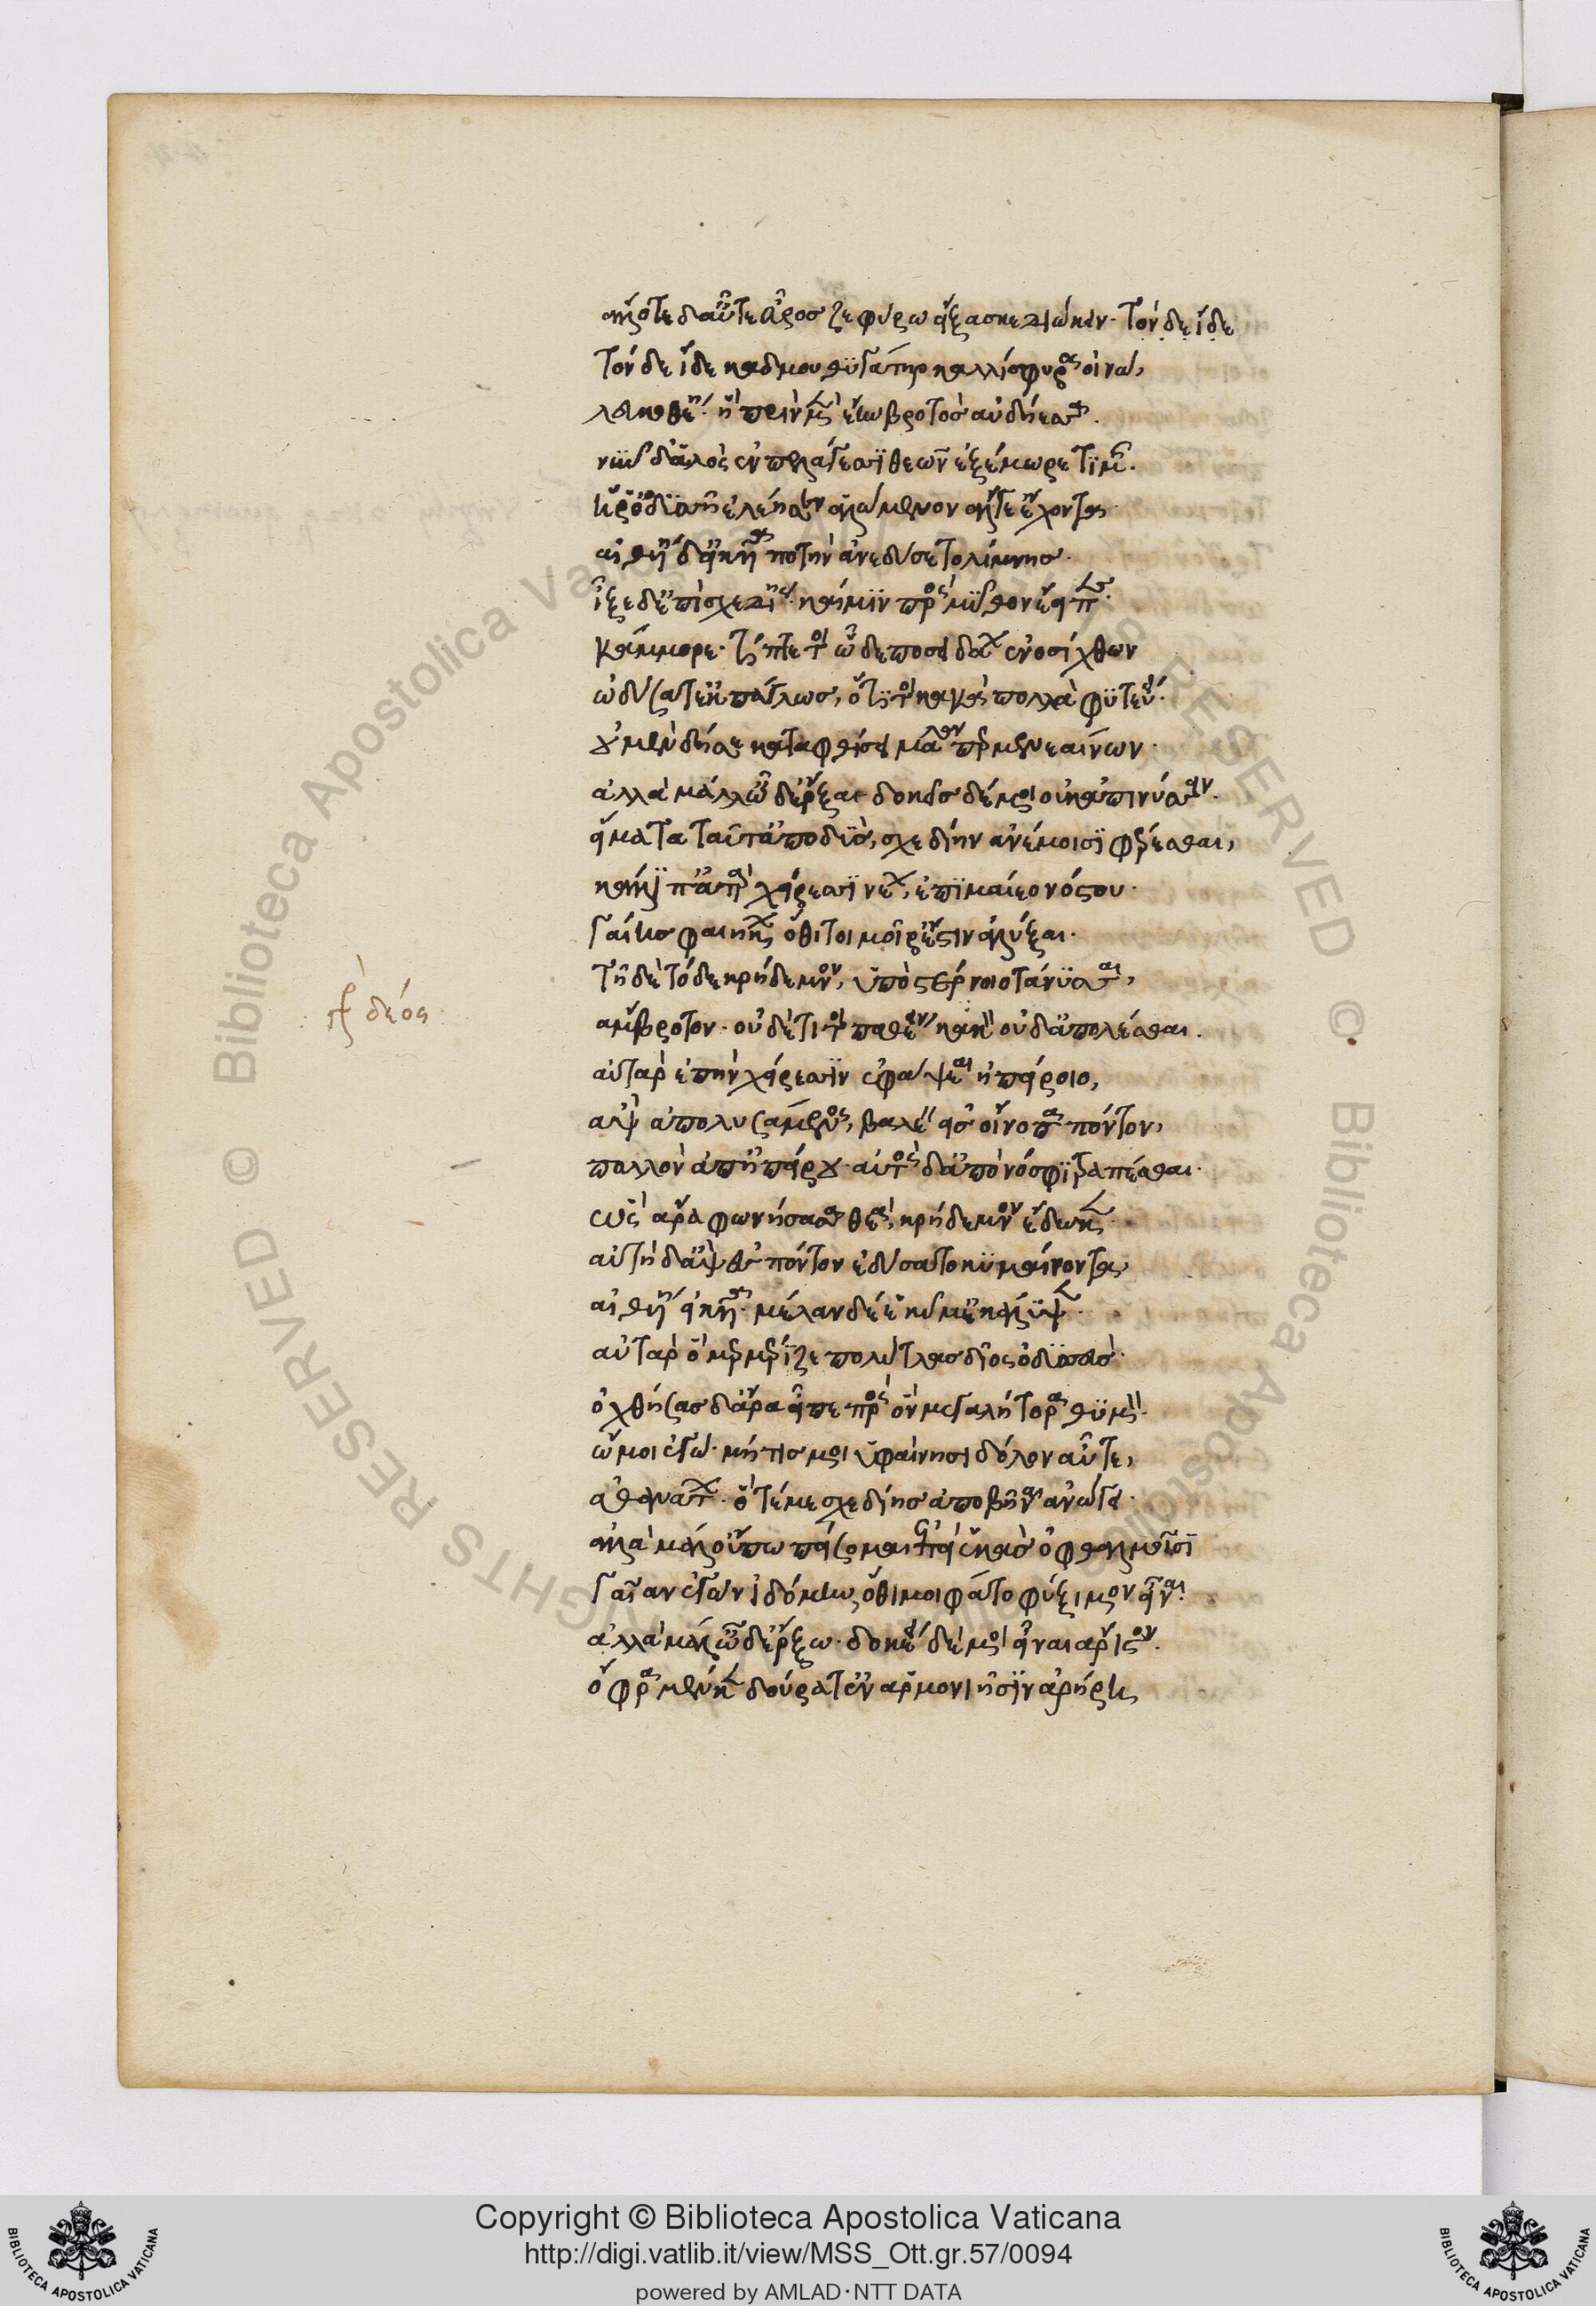 ἄλλοτε δ' αὖτ' εὖρος ζεφύρω εἴξασκε διώκειν. τὸν δὲ ἴδε
τὸν δὲ ἴδε κάδμου θυγάτηρ καλλίσφυρος ἰνώ,
λευκοθέη. ἣ πρὶν μὲν ἔην βροτὸς αὐδήεσσα.
νῦν δ' ἁλὸς ἐν πελάγεσσι θεῶν ἐξέμμορε τιμῆς.
ἥ ῥ' ὀδυσῆ' ἐλέησεν ἀλώμενον ἄλγε' ἔχοντα.
αἰθυίῃ δ' εἰκυῖα ποτὴν ἀνεδύσετο λίμνης.
ἷζε δ' ἐπὶ σχεδίης. καί μιν πρὸς μῦθον ἔειπεν.
κάμμορε. τίπτε τοι ὧδε ποσειδάων ἐνοσίχθων
ὠδύσατ' ἐκπάγλως, ὅτι τοι κακὰ πολλὰ φυτεύει.
οὐ μὲν δή σε καταφθίσει μάλα περ μενεαίνων.
ἀλλὰ μάλ' ὧδ' ἔρξαι δοκεῖς δέ μοι οὐκ ἀπινύσσειν.
εἵματα ταῦτ' ἀποδὺς, σχεδίην ἀνέμοισι φέρεσθαι,
κάλλιπ' ἀτὰρ χείρεσσι νέων, ἐπιμαίεο νόστου.
γαίης φαιήκων ὅθι τοι μοῖρ' ἐστὶν ἀλύξαι.
τῆ δὲ τόδε κρήδεμνον, ὑπὸ στέρνοιο τάνυσσαι,
ἄμβροτον. οὐδέ τί τοι παθέειν κακὸν οὐδ' ἀπολέσθαι.
αὐτὰρ ἐπὴν χείρεσσιν ἐφάψεαι ἠπείροιο,
ἂψ ἀπολυσάμενος, βαλέειν εἰς οἴνοπα πόντον,
πολλὸν ἀπ' ἠπείρου. αὐτὸς δ' ἀπονόσφι τραπέσθαι.
ὣς ἄρα φωνήσασα θεὰ, κρήδεμνον ἔδωκεν.
αὐτὴ δ' ἂψ ἐς πόντον ἐδύσατο κυμαίνοντα,
αἰθυίῃ εἰκυῖα. μέλαν δέ ἑ κῦμ' ἐκάλυψεν.
αὐτὰρ ὁ μερμήριξε πολύτλας δῖος ὀδυσσεύς.
ὀχθήσας δ' ἄρα εἶπε πρὸς ὃν μεγαλήτορα θυμόν.
ὤ μοι ἐγώ. μή τίς μοι ὑφαίνησι δόλον αὖτε,
ἀθανάτων. ὅ τέ με σχεδίης ἀποβῆναι ἀνώγει.
ἀλλὰ μάλ' οὔπω πείσομαι ἐπεὶ ἑκὰς ὀφθαλμοῖσι
γαῖαν ἐγὼν ἰδόμην, ὅθι μοι φάτο φύξιμον εἶναι.
ἀλλὰ μάλ' ὧδ' ἔρξω. δοκέει δέ μοι εἶναι ἄριστον.
ὄφρα μὲν κεν δούρατ' ἐν ἁρμονίησιν ἀρήρῃ,